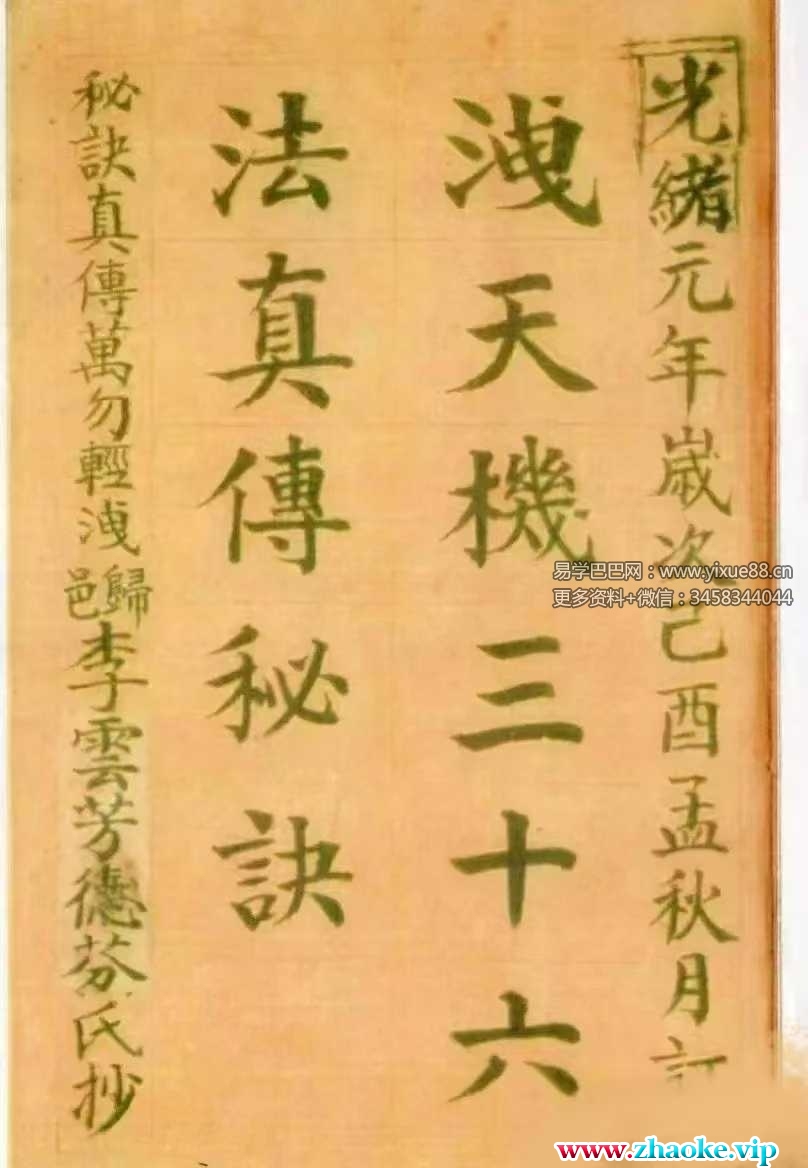 光緒元年嵗次己酉孟秋月訂
洩天機三十六
法真傳秘訣
秘訣真傳萬勿輕洩歸邑李雲芳德芬氏抄
易学巴巴网：www.yixue88.cn
更多资料+微信：3458344044
www.zhaoke.vip